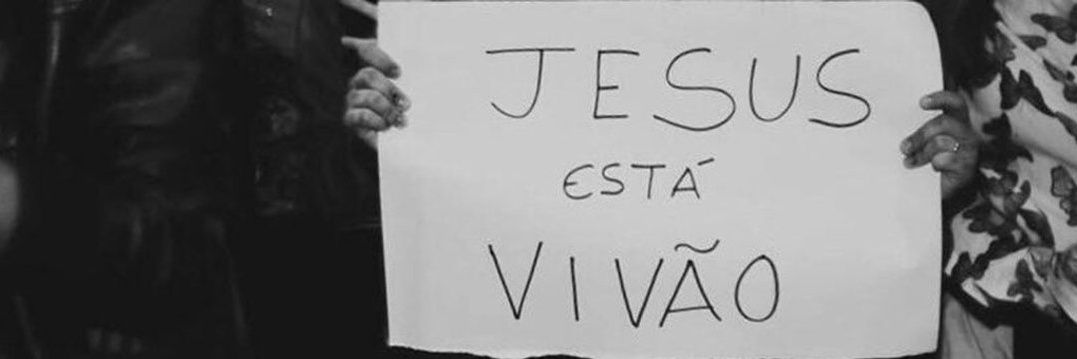 JESUS
ESTÁ
VIVÃO